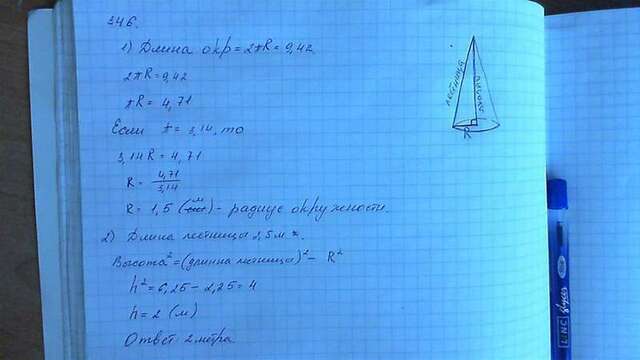 346.
1) Длина окр = 2πR = 9,42
2πR = 9,42
πR = 4,71
Если π = 3,14, то
3,14R = 4,71
R = 4,71/3,14
R = 1,5 (м) - радиус окружности.
2) Длина лестницы 2,5 м.
Высота² = (длинна лестницы)² - R²
h² = 6,25 - 2,25 = 4
h = 2 (м)
Ответ: 2 метра
лестница
высота
R
LINC